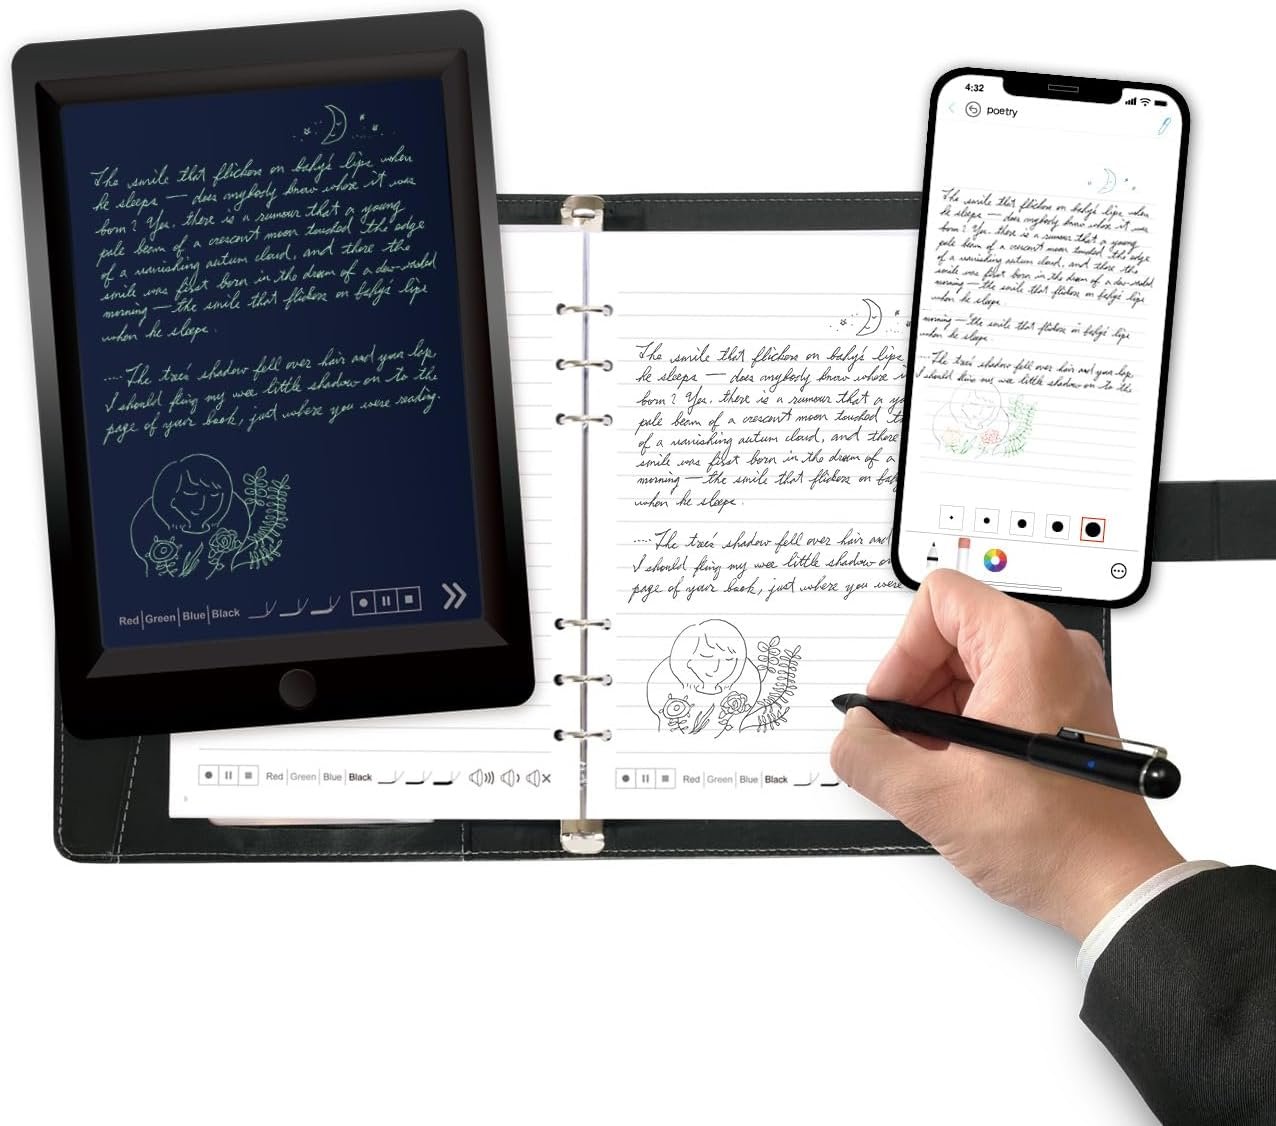 The smile that flickers on baby's lips when
he sleeps — does anybody know where it was
born? Yes, there is a rumour that a young
pale beam of a crescent moon touched the edge
of a vanishing autum cloud, and there the
smile was first born in the dream of a dew-washed
morning — the smile that flickers on baby's lips
when he sleeps.
....The tree's shadow fell over hair and your lap
I should fling my wee little shadow on to the
page of your book, just where you were reading.
Red|Green|Blue|Black
Red|Green|Blue|Black
The smile that flickers on baby's lips
he sleeps — does anybody know where i
born? Yes, there is a rumour that a yo
pale beam of a crescent moon touched t
of a vanishing autum cloud, and there
smile was first born in the dream of a
morning — the smile that flickers on bab
when he sleeps.
....The tree's shadow fell over hair and
I should fling my wee little shadow on
page of your book, just where you were
Red|Green|Blue|Black
4:32
poetry
The smile that flickers on baby's lips when
he sleeps — does anybody know where it was
born? Yes, there is a rumour that a young
pale beam of a crescent moon touched the edge
of a vanishing autum cloud, and there the
smile was first born in the dream of a dew-washed
morning — the smile that flickers on baby's lips
when he sleeps.
morning — the smile that flickers on baby's lips
when he sleeps.
....The tree's shadow fell over hair and your lap
I should fling my wee little shadow on to the